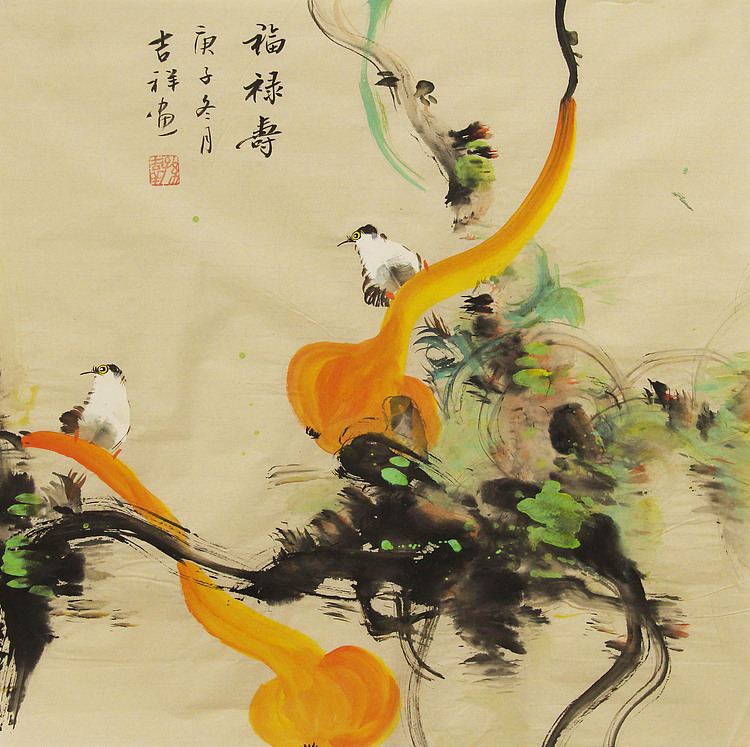 福禄寿
庚子冬月
吉祥画